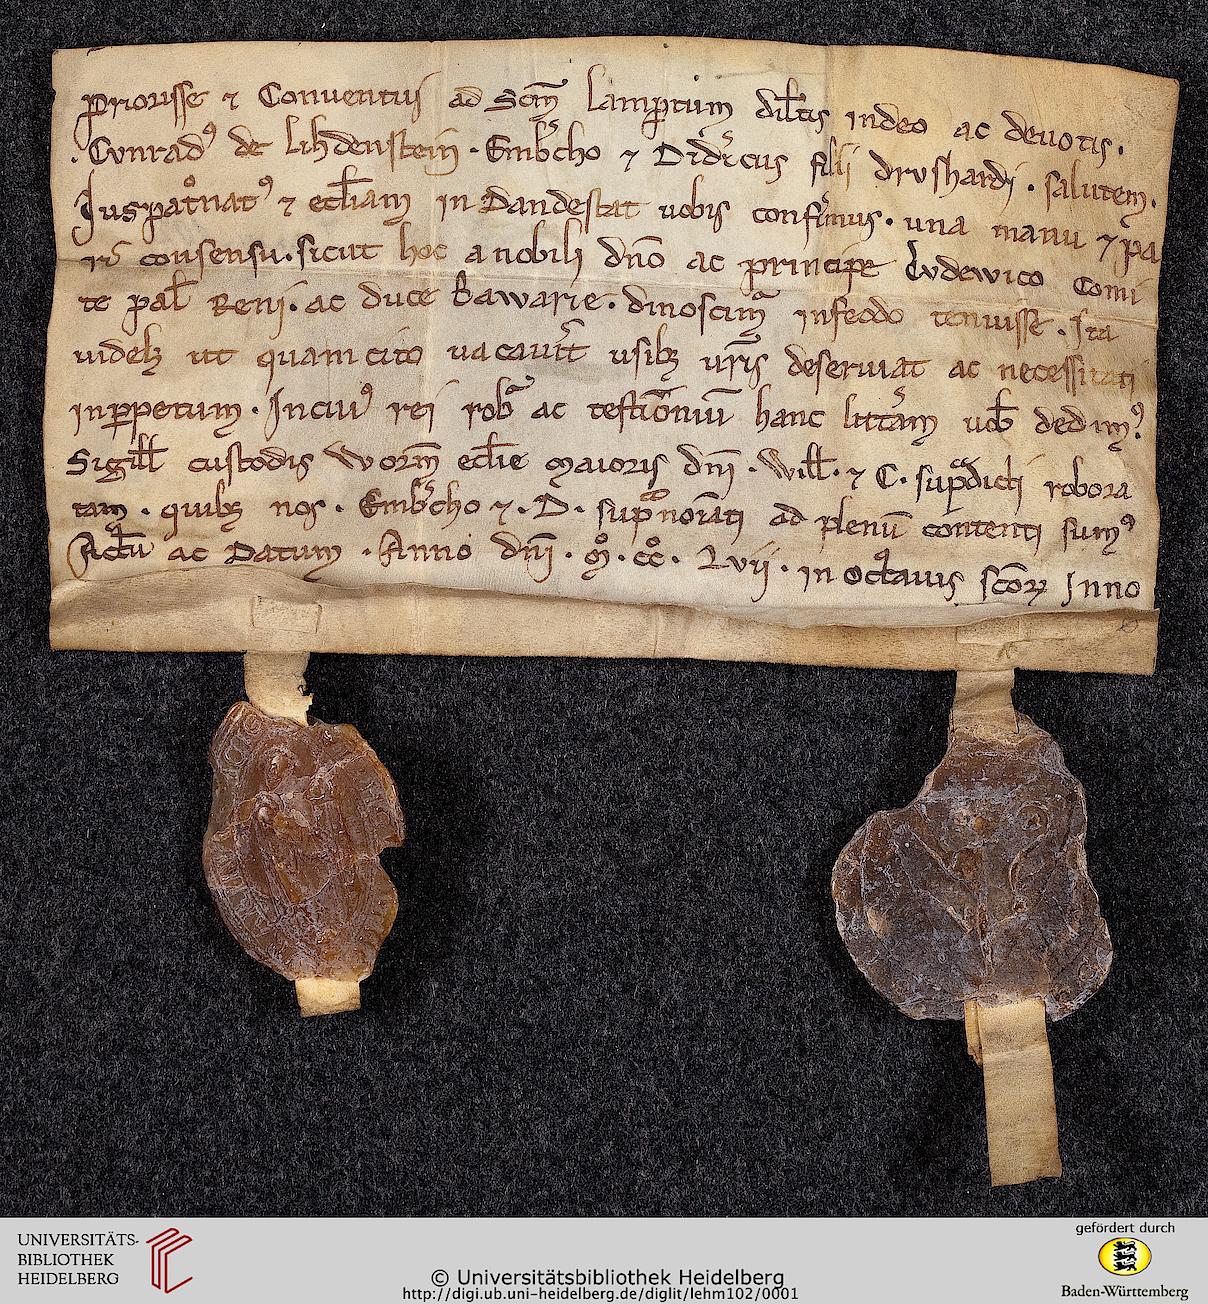 Priorisse ⁊ Conuentui ad Scm̄ Lamp̱tum dil̄tis in deo ac deuotis.
. Cvnrad᷒ de Lihdenstein . Embͥcho ⁊ Didͥicus filii drvshardi . salutem.
Jus pat͛nat᷒ ⁊ eccl̄iam in Dandestat uobis confͥmus . una manu ⁊ pa
rͥ consensu . sicut hoc a nobili dn̄o ac principe Lvdewico Comi
te pal̄ Reni . ac duce Bawarie . dinoscimͬ in feodo tenuisse . Ita
uidelꝫ ut quam cito uacauͥit usibꝫ ur̄is deseruiat ac necessitati
inꝑpetuum . In cui᷒ rei robͬ ac testīoniū hanc littͣam uob̄ dedim᷒.
Sigill̄ custodis Worm̄ eccl̄ie maioris dn̄i . Will̄ . ⁊ C . supͣdicti robora
tam . quibꝫ nos . Embͥcho ⁊ . D . supͣnoīati ad plenū contenti sum᷒
Actū ac Datum . Anno dn̄i . m̊ . cc̊ . Lvii . in octauis sc̄oꝝ Inno
UNIVERSITÄTS-
BIBLIOTHEK
HEIDELBERG
© Universitätsbibliothek Heidelberg
http://digi.ub.uni-heidelberg.de/diglit/lehm102/0001
gefördert durch
Baden-Württemberg